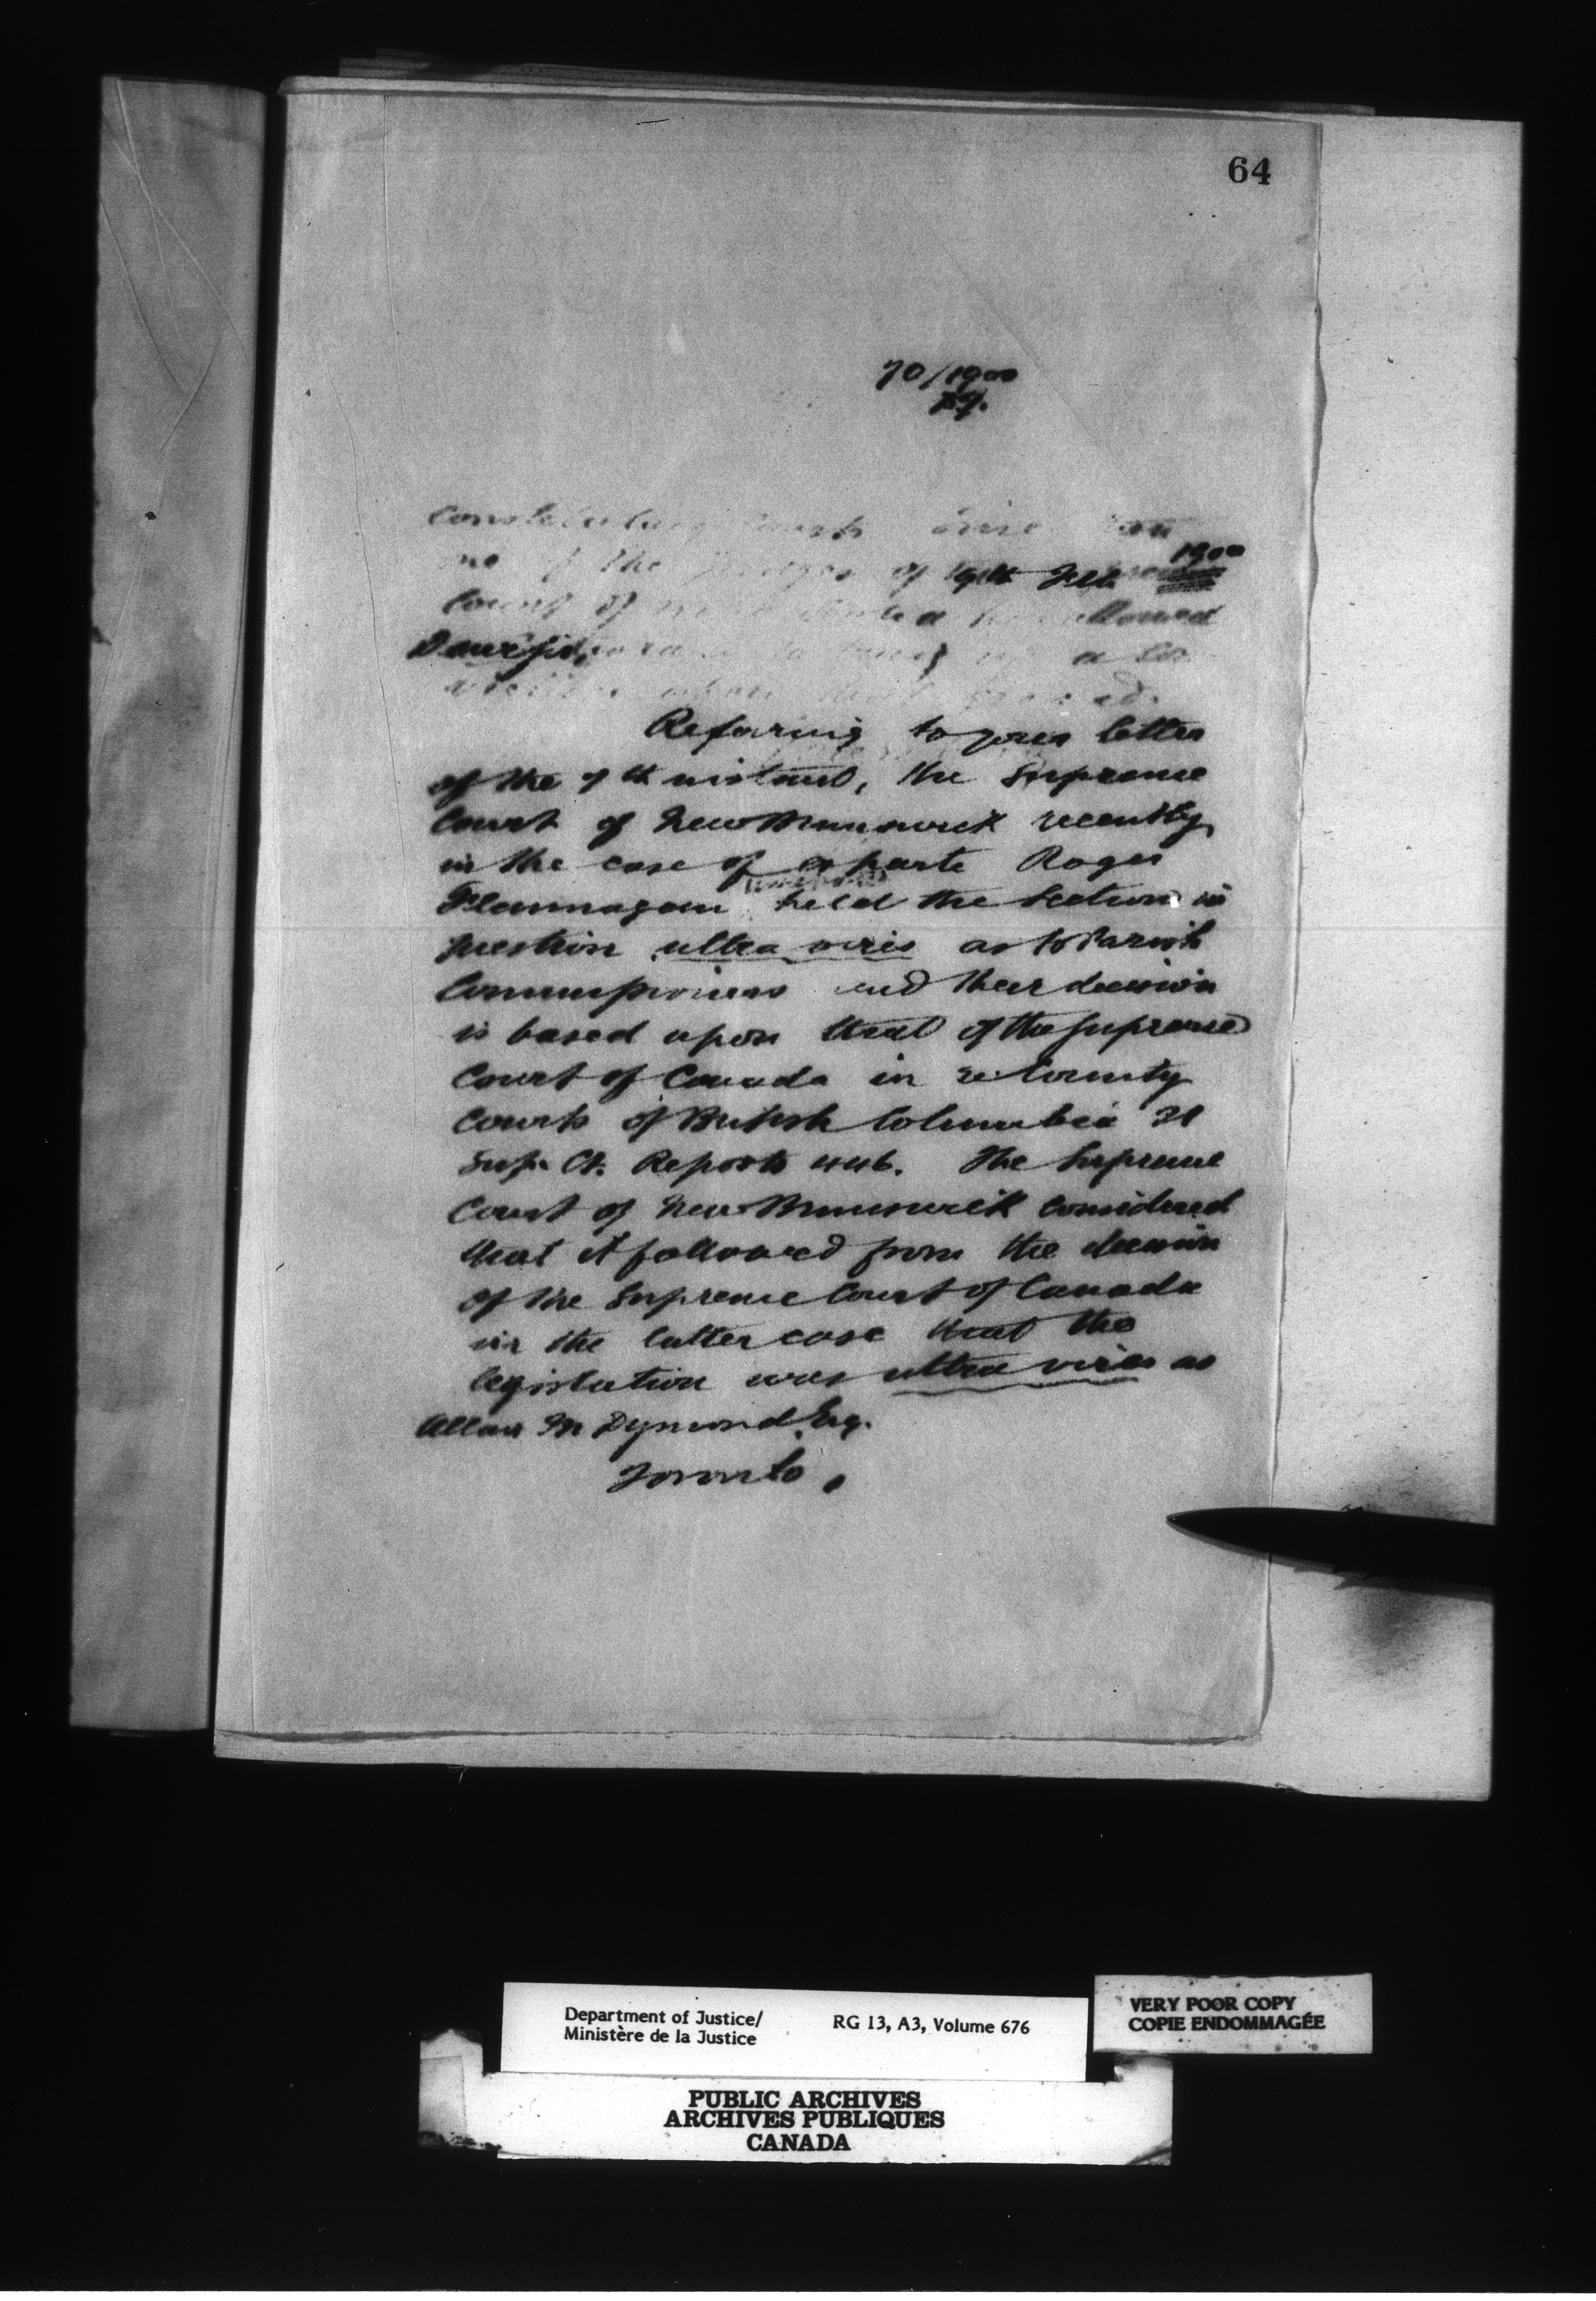 64
70/1900
19th Feb 1900
Dear Sir,
Refering to your letter
of the 7th instant, the Supreme
Court of New Brunswick recently
in the case of ex parte Roger
Flannagan held the section in
question ultra vires as to Parish
Commissioners and their decision
is based upon that of the Supreme
Court of Canada in re County
Courts of British Columbia 21
Sup. Ct. Reports 446. The Supreme
Court of New Brunswick considered
that it followed from the decision
of the Supreme Court of Canada
in the latter case that the
legislation was ultra vires as
Allan M Dymond Esq.
Toronto.
Department of Justice/
Ministère de la Justice
RG 13, A3, Volume 676
VERY POOR COPY
COPIE ENDOMMAGÉE
PUBLIC ARCHIVES
ARCHIVES PUBLIQUES
CANADA